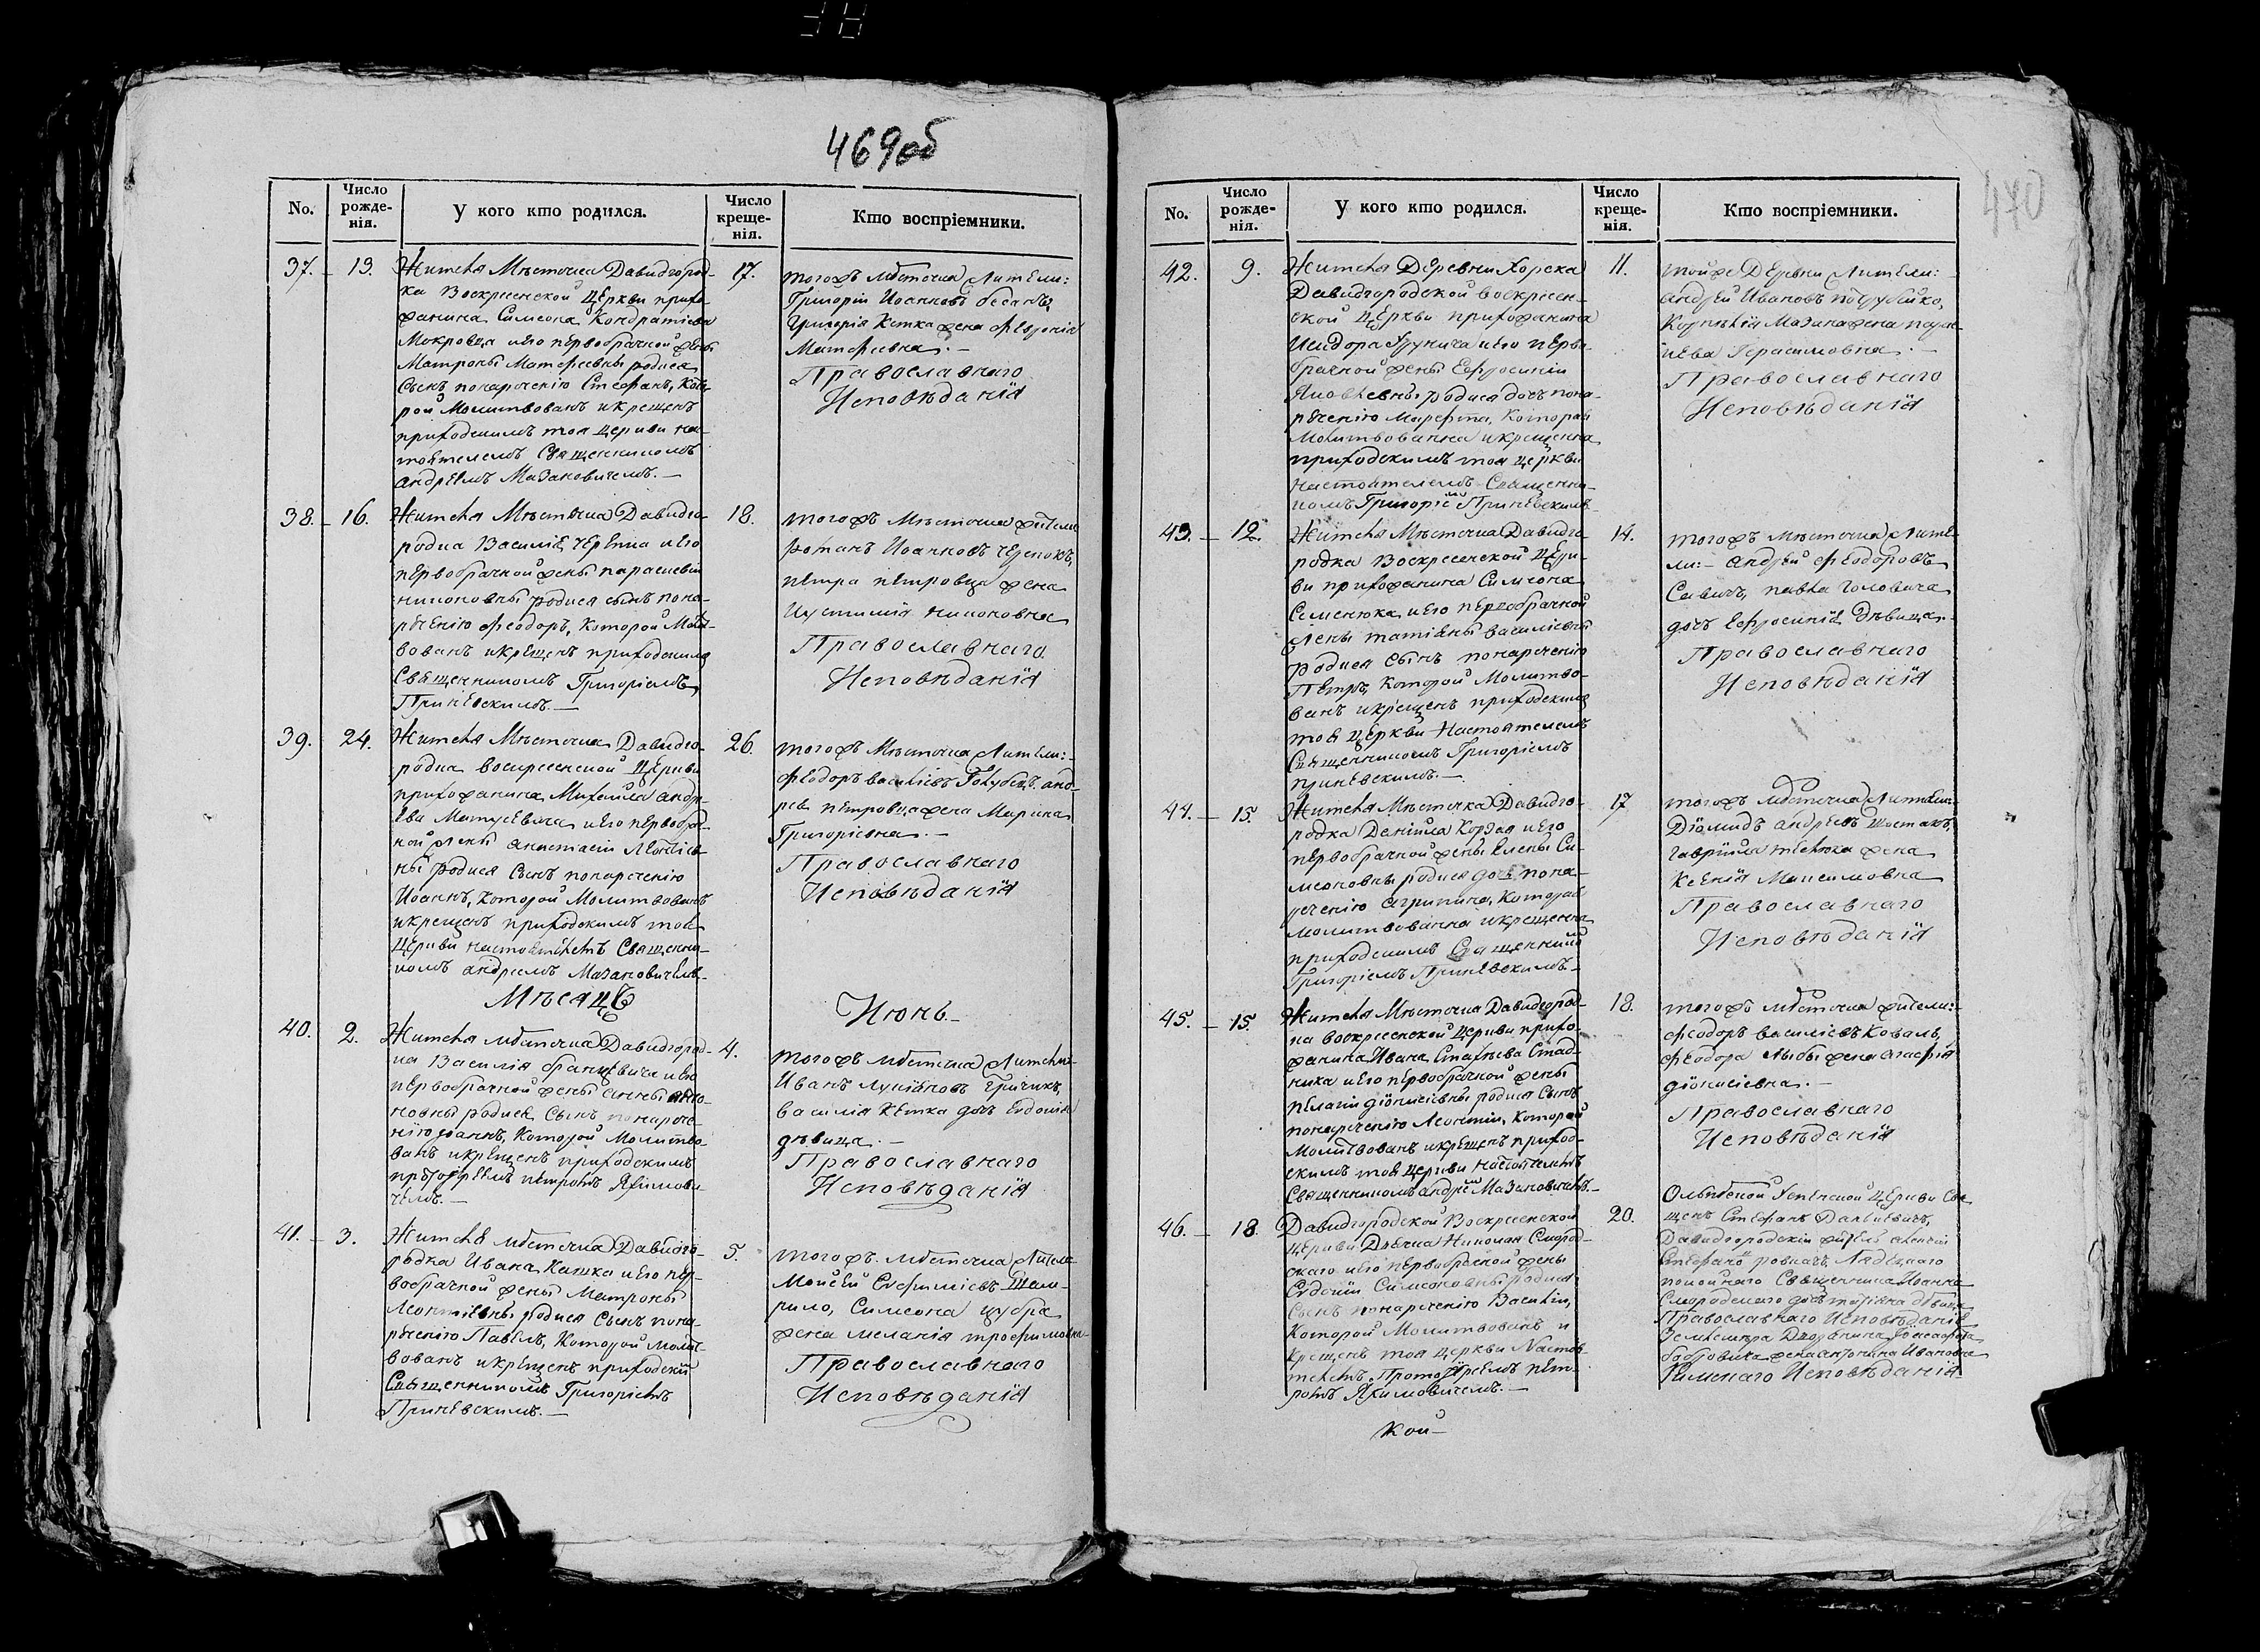 469об
No.
Число рожде-нія.
У кого кто родился.
Число креще-нія.
Кто воспріемники.
37. 13.
Жителя Мѣстечка Давидгород-
ка Воскресенской Церкви прихо-
жанина Симеона Кондратіева
Мокровца и его первобрачной жены
Матроны Матфеевны родися
Сынъ понареченію Стефанъ, кото-
рой Молитвованъ и крещенъ
приходскимъ тоя церкви на-
стоятелемъ Священникомъ
андреемъ Мазановичемъ.
17.
тогожъ мѣстечка Жители:
Григорій Иоанновъ
Григорія Кетка жена Февронія
Матфеевна.
Православнаго
Исповѣданія
38. 16.
Жителя Мѣстечка Давидго-
родка Василія и его
первобрачной жены параскевіи
никоновны родися сынъ пона-
реченію Феодоръ, которой Молит-
вованъ и крещенъ приходскимъ
Священникомъ Григоріемъ
Приневскимъ.
18.
тогожъ Мѣстечка жители
Романъ Иоанновъ
петра петровца жена
Иустинія никоновна
Православнаго
Исповѣданія
39. 24.
Жителя Мѣстечка Давидго-
родка воскресенской Церкви
прихожанина Михаила андре-
ева Матусевича и его первобрач-
ной жены анастасіи Леонтіев-
ны родися Сынъ понареченію
Иоаннъ, которой Молитвованъ
и крещенъ приходскимъ тоя
Церкви настоятелемъ Священни-
комъ андреемъ Мазановичемъ.
26.
тогожъ Мѣстечка Жители:
Феодоръ васильевъ Голубецъ, анд-
рея петровца жена Марина
Григоріевна.
Православнаго
Исповѣданія
Мѣсяцъ Июнь.
40. 2.
Жителя мѣстечка Давидгород-
ка Василія и его
первобрачной жены анны
новны родися Сынъ понарече-
нію Иоаннъ, которой Молитво-
ванъ и крещенъ приходскимъ
протоіереемъ петромъ Якимови-
чемъ.
4.
тогожъ мѣстечка Жители
Иванъ Лукіяновъ Гричикъ,
василія Кетка дочь Евдокія
дѣвица.
Православнаго
Исповѣданія
41. 3.
Жителя мѣстечка Давидго-
родка Ивана Кашка и его пер-
вобрачной жены Матроны
Леонтіевны родися Сынъ пона-
реченію Павелъ, Которой молит-
вованъ и крещенъ приходскимъ
Священникомъ Григоріемъ
Приневскимъ.
5.
тогожъ мѣстечка Жители
Моисей Евфиміевъ
Симеона
жена меланія трофимовна
Православнаго
Исповѣданія
470
No.
Число рожде-нія.
У кого кто родился.
Число креще-нія.
Кто воспріемники.
42. 9.
Жителя Деревни Хорска
Давидгородской воскресен-
ской Церкви прихожанина
Исидора и его перво-
брачной жены Евфросиніи
Яковлевны родися дочь пона-
реченію Марфа, Которая
Молитвованна и крещенна
приходскимъ тоя церкви
настоятелемъ Священни-
комъ Григоріемъ Приневскимъ.
11.
тойже Деревни Жители:
андрей Ивановъ
Корнилія Мазана жена параске-
ва Герасимовна.
Православнаго
Исповѣданія
43. 12.
Жителя Мѣстечка Давидго-
родка Воскресенской Церк-
ви прихожанина Симеона
Семенюка и его первобрачной
жены татіяны васильевны
родися Сынъ понареченію
Петръ, Которой Молитво-
ванъ и крещенъ приходскимъ
тоя церкви Настоятелемъ
Священникомъ Григоріемъ
приневскимъ.
14.
тогожъ мѣстечка Жите-
ли: андрей Феодоровъ
Савичъ, павла Головача
дочь Евфросинія дѣвица.
Православнаго
Исповѣданія
44. 15.
Жителя Мѣстечка Давидго-
родка Даніила и его
первобрачной жены Елены Си-
меоновны родися дочь пона-
реченію агрипина, Которая
молитвованна и крещенна
приходскимъ Священникомъ
Григоріемъ Приневскимъ.
17
тогожъ мѣстечка Жители:
Діомидъ андреевъ Шостакъ,
Гавріила жена
Ксенія Максимовна
Православнаго
Исповѣданія
45. 15.
Жителя Мѣстечка Давидгород-
ка воскресенской Церкви прихо-
жанина Ивана Стад-
ника и его первобрачной жены
пелагіи діонисіевны родися Сынъ
понареченію Леонтій, Которой
Молитвованъ и крещенъ приход-
скимъ тоя Церкви настоятелемъ
Священникомъ андреемъ Мазановичемъ.
18.
тогожъ мѣстечка жители:
Феодоръ василіевъ Коваль,
Феодора жена агафія
діонисіевна.
Православнаго
Исповѣданія
46. 18.
Давидгородской Воскресенской
Церкви Дьячка Николая Смород-
скаго и его первобрачной жены
Евдокіи Симеоновны родися
Сынъ понареченію Василій,
Которой Молитвованъ и
Крещенъ тоя церкви Настоя-
телемъ Протоіереемъ пет-
ромъ Якимовичемъ.
20.
Церкви Свя-
щен. Стефанъ Данилевичъ,
Давидгородскій житель
покойнаго Священника Иоанна
Смородскаго дочь дѣвица
Православнаго Исповѣданія
жена антонина Ивановна
Римскаго Исповѣданія
кой-